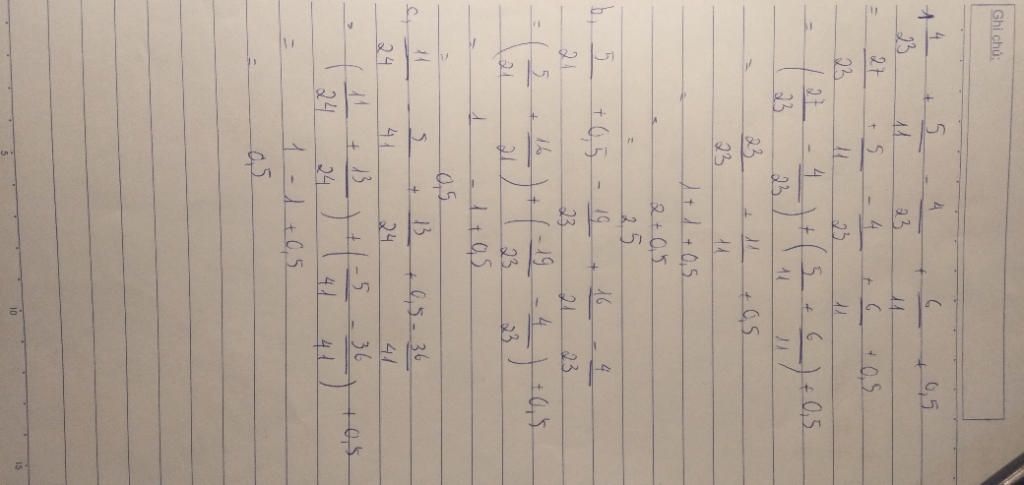 Ghi chú:
1 4/23 + 5/11 - 4/23 + 6/11 + 0,5
= 27/23 + 5/11 - 4/23 + 6/11 + 0,5
= (27/23 - 4/23) + (5/11 + 6/11) + 0,5
= 23/23 + 11/11 + 0,5
= 1 + 1 + 0,5
= 2 + 0,5
= 2,5
b, 5/21 + 0,5 - 19/23 + 16/21 - 4/23
= (5/21 + 16/21) + (-19/23 - 4/23) + 0,5
= 1 - 1 + 0,5
= 0,5
c, 11/24 - 5/41 + 13/24 + 0,5 - 36/41
= (11/24 + 13/24) + (-5/41 - 36/41) + 0,5
= 1 - 1 + 0,5
= 0,5
5 10 15